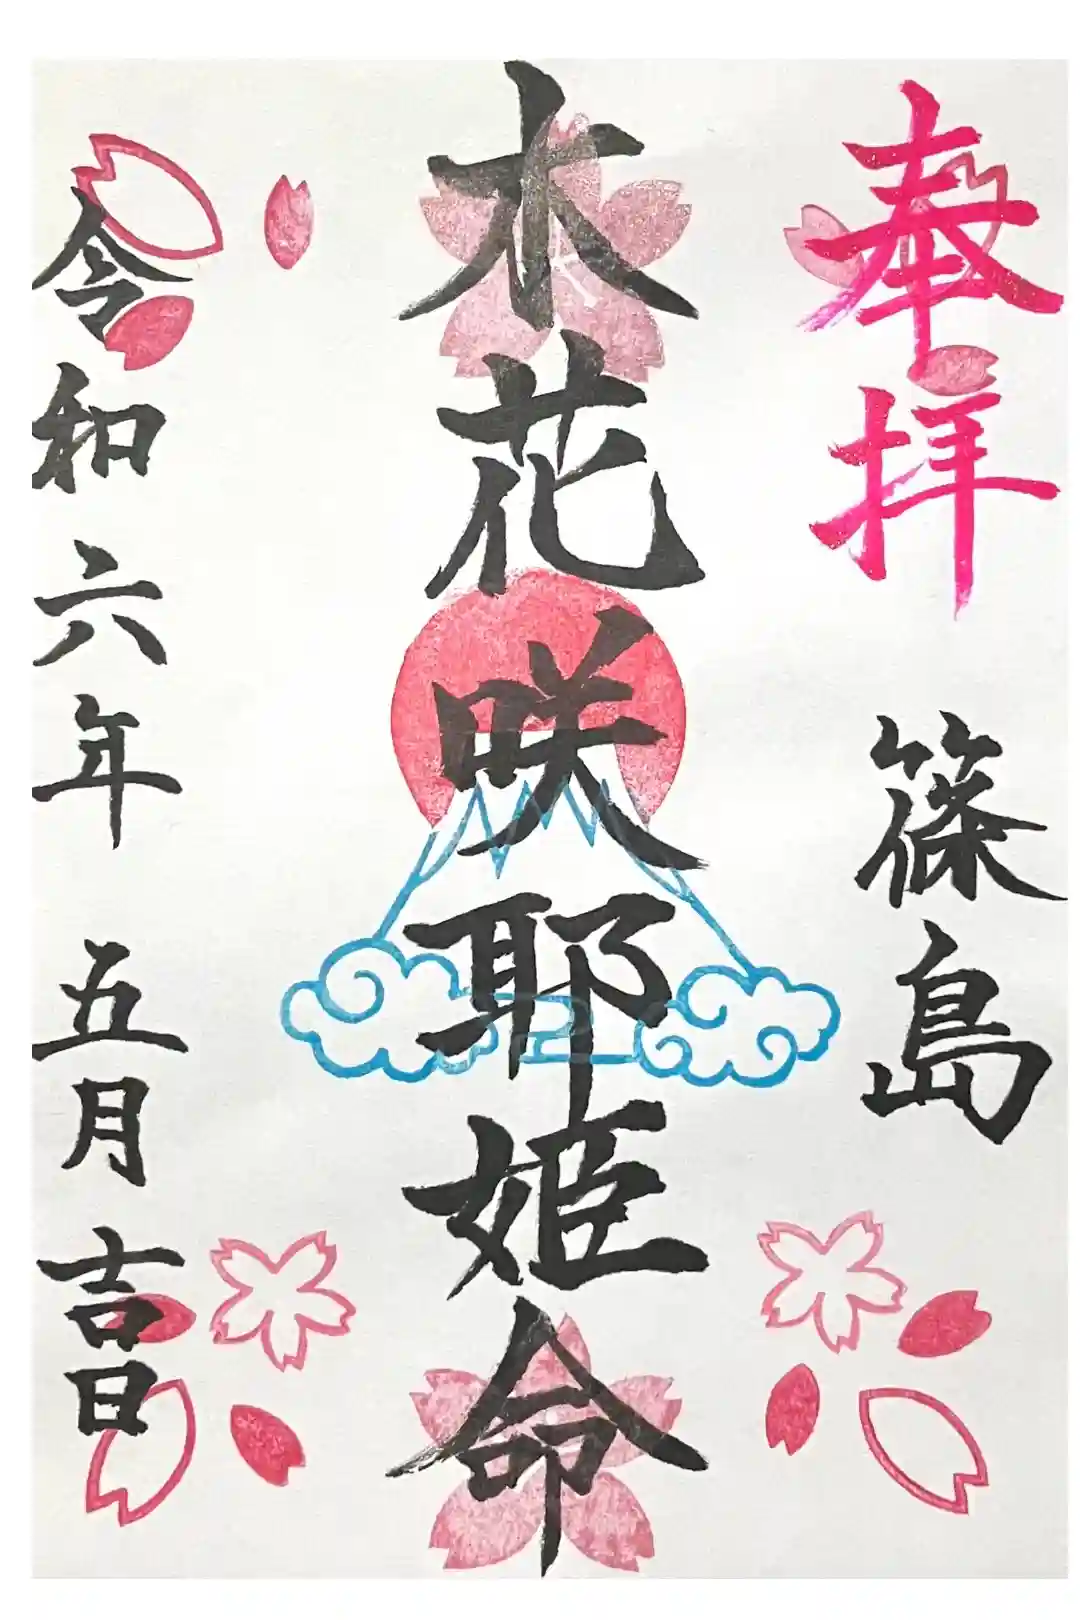 奉拝
篠島
木花咲耶姫命
令和六年 五月 吉日